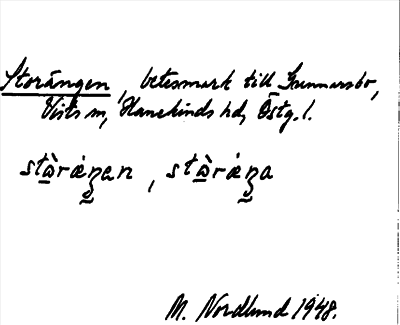 Storängen, betesmark till Gunnarsbo,
Vists sn, Hanekinds hd, Östg. l.
stɷ̀ráŋan, stɷ̀ráŋa
M. Nordlund 1948.